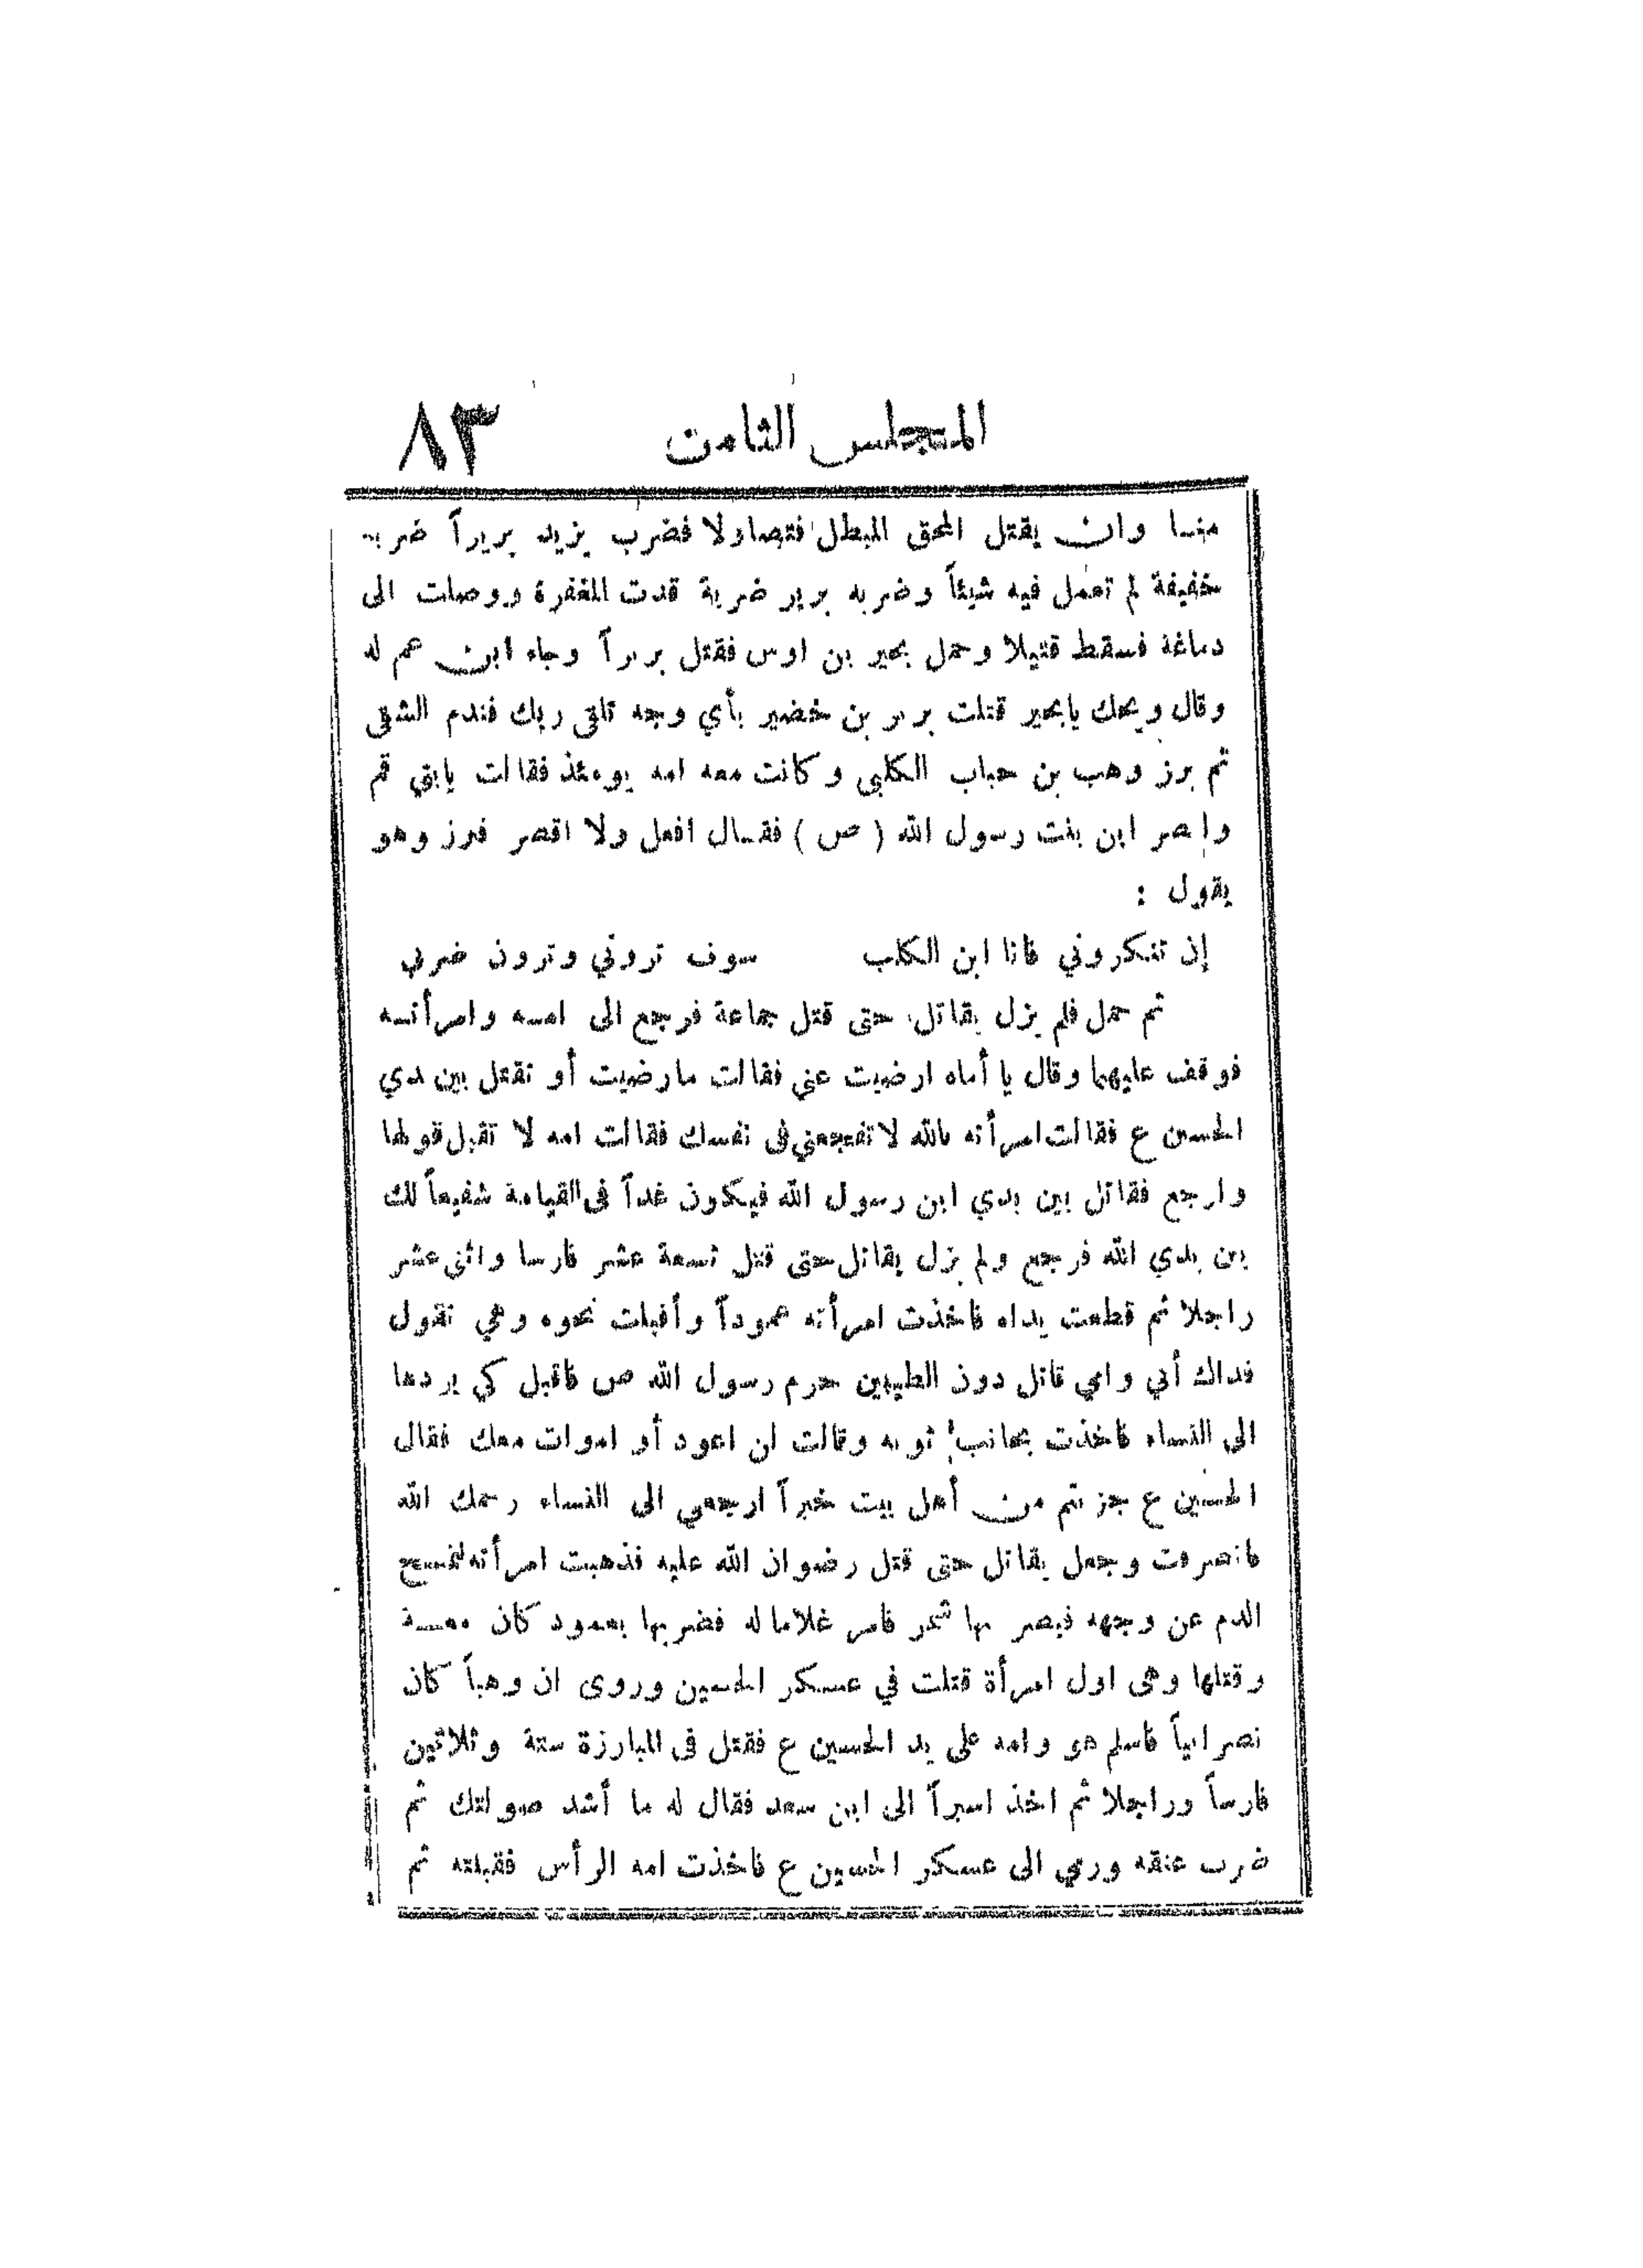 المجلس الثامن ٨٣
منا وان يقتل المحق المبطل فتصاولا فضرب يزيد بريراً ضربة
خفيفة لم تعمل فيه شيئاً وضربه برير ضربة قدت المغفرة ووصلت الى
دماغه فسقط قتيلا وحمل بحير بن اوس فقتل بريراً وجاء ابن عم له
وقال ويحك يابحير قتلت برير بن خضير بأي وجه تلقى ربك فندم الشقي
ثم برز وهب بن حباب الكلبي وكانت معه امه يومئذ فقالت يابني قم
وانصر ابن بنت رسول الله ( ص ) فقال افعل ولا اقصر فبرز وهو
يقول :
إن تنكروني فانا ابن الكلب سوف تروني وترون ضربي
ثم حمل فلم يزل يقاتل حتى قتل جماعة فرجع الى امه وامرأته
فوقف عليهما وقال يا أماه ارضيت عني فقالت مارضيت أو تقتل بين يدي
الحسين ع فقالت امرأته بالله لا تفجعني في نفسك فقالت امه لا تقبل قولها
وارجع فقاتل بين يدي ابن رسول الله فيكون غداً في القيامة شفيعاً لك
بين يدي الله فرجع ولم يزل يقاتل حتى قتل تسعة عشر فارسا واثني عشر
راجلا ثم قطعت يداه فاخذت امرأته عموداً وأقبلت نحوه وهي تقول
فداك أبي وامي قاتل دون الطيبين حرم رسول الله ص فاقبل كي يردها
الى النساء فاخذت بجانب ثوبه وقالت لن اعود أو اموات معك فقال
الحسين ع جزيتم من أهل بيت خيراً ارجعي الى النساء رحمك الله
فانصرفت وجعل يقاتل حتى قتل رضوان الله عليه فذهبت امرأته تمسح
الدم عن وجهه فبصر بها شمر فامر غلاما له فضربها بعمود كان معه
وقتلها وهي اول امرأة قتلت في عسكر الحسين وروى ان وهباً كان
نصرانياً فاسلم هو وامه على يد الحسين ع فقتل في المبارزة ستة وثلاثين
فارساً وراجلا ثم اخذ اسيراً الى ابن سعد فقال له ما أشد صولتك ثم
ضرب عنقه ورمي الى عسكر الحسين ع فاخذت امه الرأس فقبلته ثم